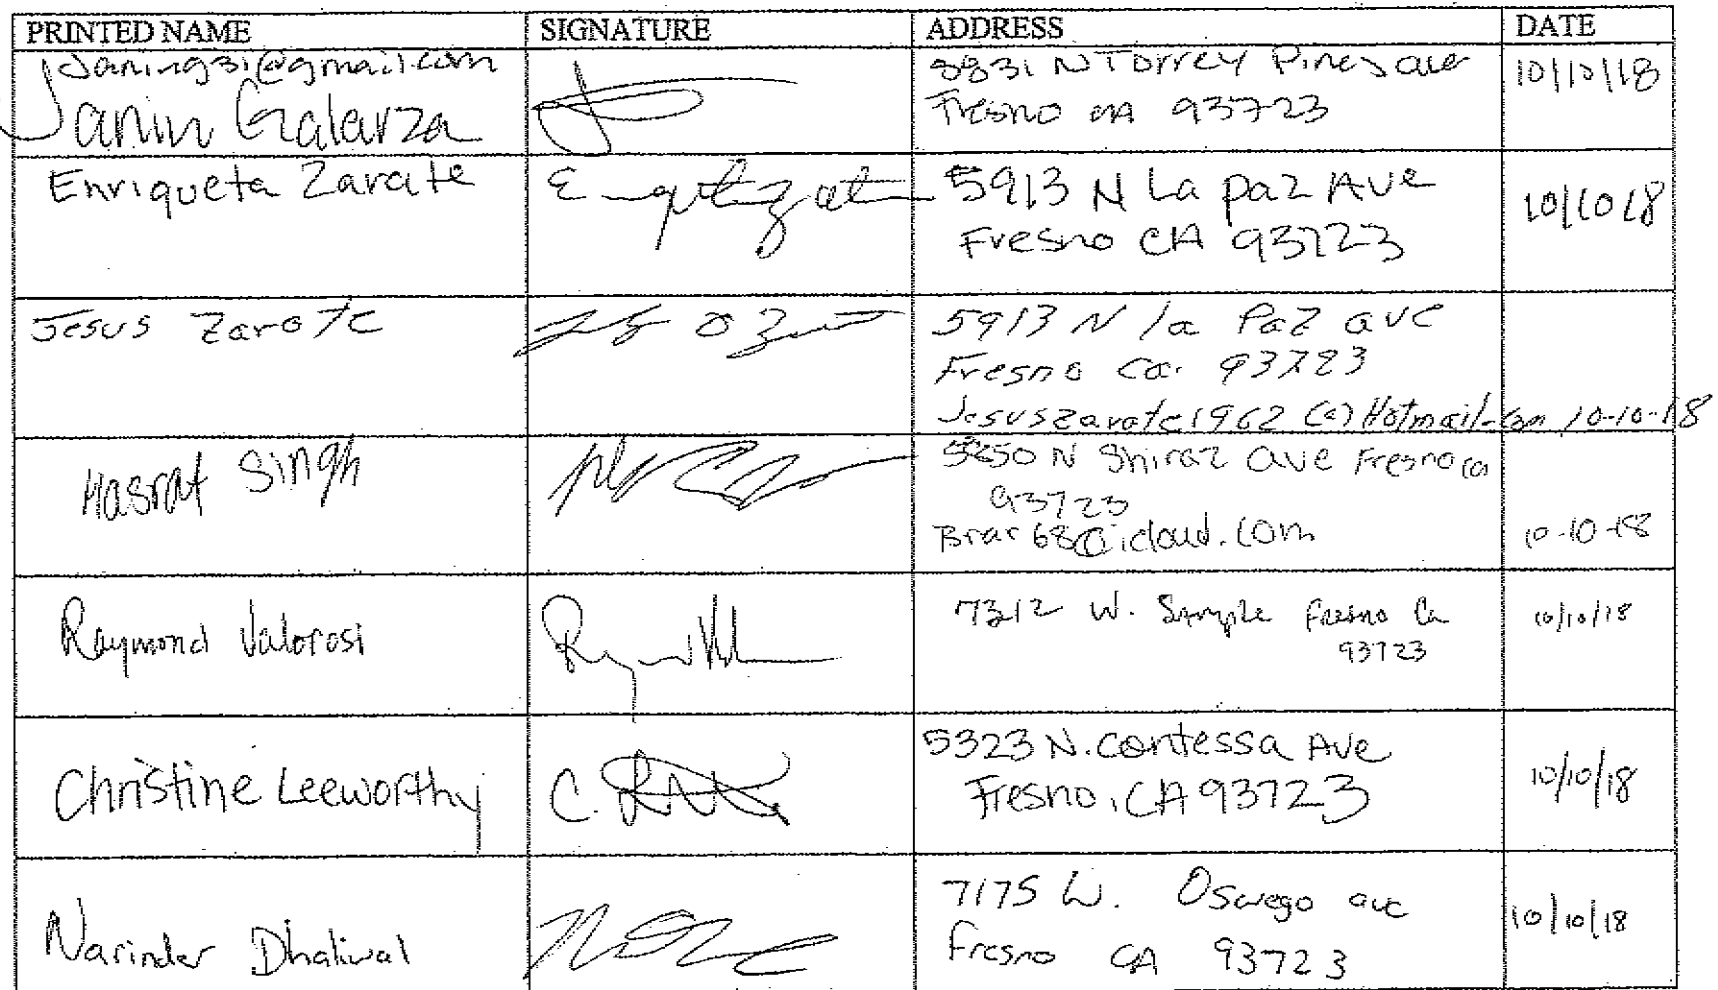 PRINTED NAME SIGNATURE ADDRESS DATE
Janing31@gmail.com
Janin Galarza
N Torrey Pines ave
Fresno CA 93723
10/10/18
Enriqueta Zarate
5913 N La paz Ave
Fresno CA 93723
10/10 18
Jesus Zarate
5913 N la Paz ave
Fresno Ca. 93723
Jesuszarate1962 (a) Hotmail.com 10-10-18
Hasrat Singh
N Shiraz ave Fresno ca
93723
Brar68@icloud.com
10-10-18
Raymond Valorosi
7312 W. Sample Fresno Ca
93723
10/10/18
Christine Leeworthy
5323 N. Contessa Ave
Fresno, CA 93723
10/10/18
Narinder Dhaliwal
7175 W. Oswego ave
Fresno CA 93723
10/10/18